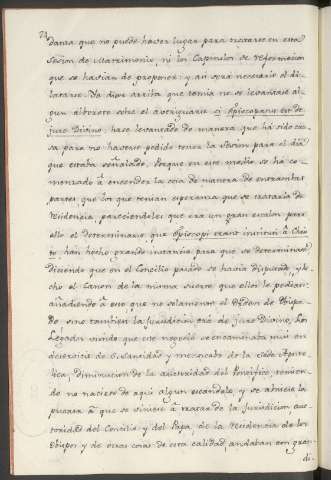 danza que no puede haver lugar para tratarse en esta
Sesion de Matrimonio, ni los Capitulos de reformacion
que se havian de proponer; y asi será necesario el di-
latarse. Ya dixe arriba que temia no se levantase al-
gun alboroto sobre el averiguarse si Episcopatus est de
jure Divino, hase levantado de manera que há sido cau-
sa para no haverse podido tener la Sesion para el dia
que estaba señalado. Porque en este medio se há co-
menzado à encender la cosa de manera de entrambas
partes que los que tenian esperanza que se trataria de
residencia, pareciendoles que era un gran escalon para
ello el determinarse que Episcopi erant instituti à Chris-
to han hecho grande instancia para que se determinase
diciendo que en el Concilio pasado se havia disputado, y he-
cho el Canon de la misma suerte que ellos le pedian
añadiendo à esto que no solamente el Orden de Obispa-
do sino tambien la Jurisdicion era de jure Divino, Los
Legados viendo que este negocio se encaminaba mui en
deservicio de S. Santidad y menoscabo de la Sede Aposto-
lica, diminucion de la autoridad del Pontifice, temien-
do no naciese de aqui algun escandalo, y se abriese la
puerta à que se viniese à tratar de la Jurisdicion, auc-
toridad del Concilio y del Papa, de la residencia de los
Obispos y de otras cosas de esta calidad, andaban con gran
di-